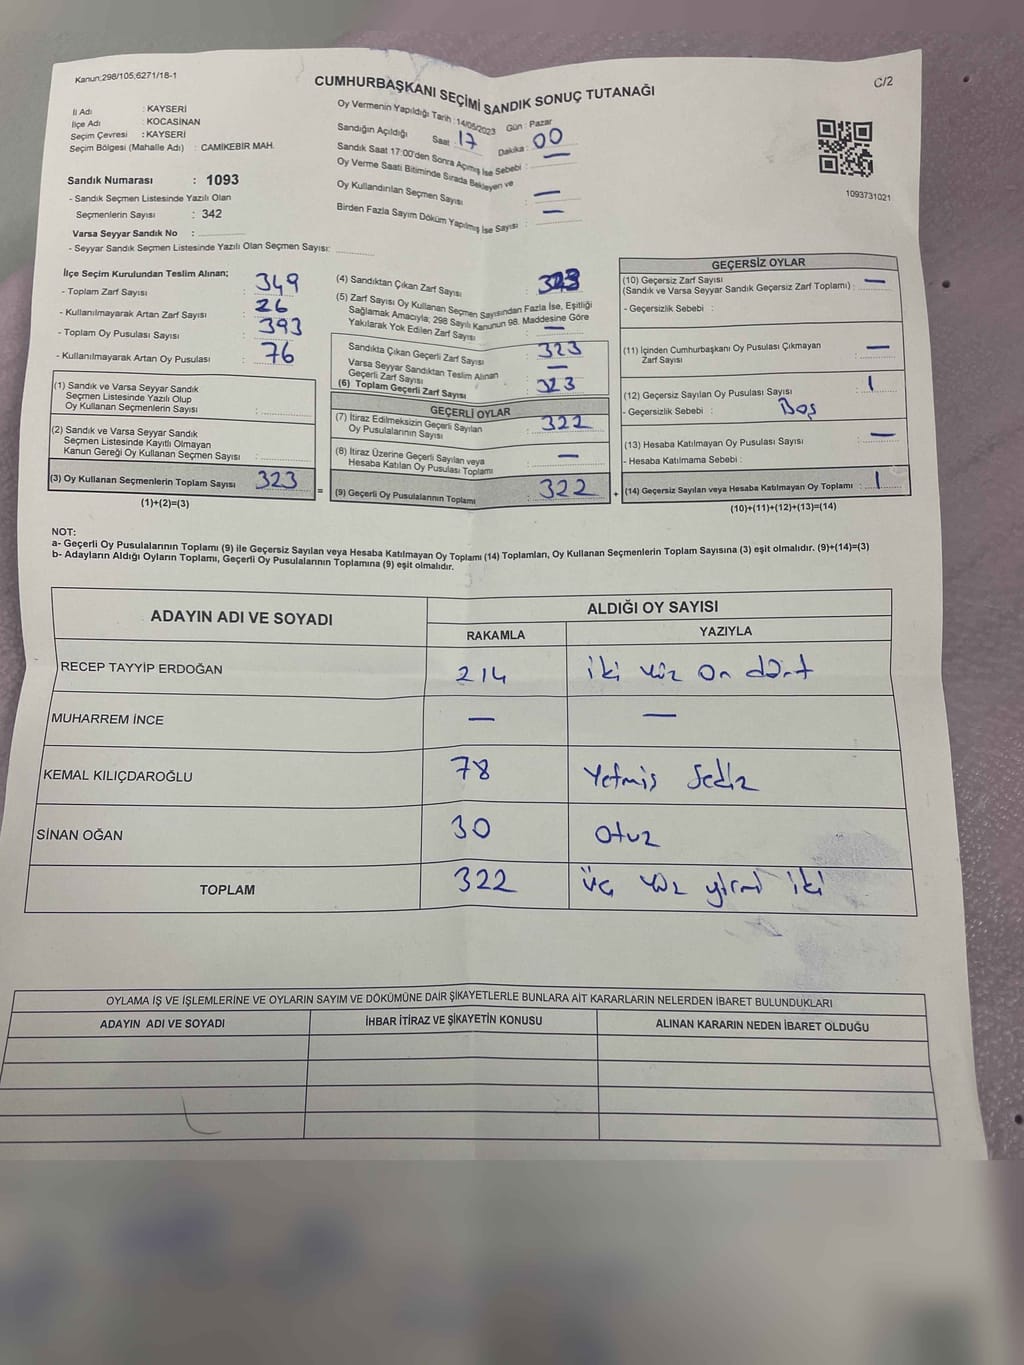 Kanun:298/105,6271/18-1
C/2
CUMHURBAŞKANI SEÇİMİ SANDIK SONUÇ TUTANAĞI
İl Adı : KAYSERİ
İlçe Adı : KOCASİNAN
Seçim Çevresi : KAYSERİ
Seçim Bölgesi (Mahalle Adı) : CAMİKEBİR MAH.
Sandık Numarası : 1093
- Sandık Seçmen Listesinde Yazılı Olan
Seçmenlerin Sayısı : 342
Varsa Seyyar Sandık No :
- Seyyar Sandık Seçmen Listesinde Yazılı Olan Seçmen Sayısı:
Oy Vermenin Yapıldığı Tarih : 14/05/2023 Gün : Pazar
Sandığın Açıldığı Saat : 17 Dakika : 00
Sandık Saat 17:00'den Sonra Açılmış İse Sebebi : —
Oy Verme Saati Bitiminde Sırada Bekleyen ve
Oy Kullandırılan Seçmen Sayısı : —
Birden Fazla Sayım Döküm Yapılmış İse Sayısı : —
1093731021
İlçe Seçim Kurulundan Teslim Alınan;
- Toplam Zarf Sayısı : 349
- Kullanılmayarak Artan Zarf Sayısı : 26
- Toplam Oy Pusulası Sayısı : 393
- Kullanılmayarak Artan Oy Pusulası : 76
(1) Sandık ve Varsa Seyyar Sandık
Seçmen Listesinde Yazılı Olup
Oy Kullanan Seçmenlerin Sayısı :
(2) Sandık ve Varsa Seyyar Sandık
Seçmen Listesinde Kayıtlı Olmayan
Kanun Gereği Oy Kullanan Seçmen Sayısı :
(3) Oy Kullanan Seçmenlerin Toplam Sayısı : 323
(1)+(2)=(3)
=
(4) Sandıktan Çıkan Zarf Sayısı : 323
(5) Zarf Sayısı Oy Kullanan Seçmen Sayısından Fazla İse, Eşitliği
Sağlamak Amacıyla; 298 Sayılı Kanunun 98. Maddesine Göre
Yakılarak Yok Edilen Zarf Sayısı : —
Sandıkta Çıkan Geçerli Zarf Sayısı : 323
Varsa Seyyar Sandıktan Teslim Alınan
Geçerli Zarf Sayısı : —
(6) Toplam Geçerli Zarf Sayısı : 323
GEÇERLİ OYLAR
(7) İtiraz Edilmeksizin Geçerli Sayılan
Oy Pusulalarının Sayısı : 322
(8) İtiraz Üzerine Geçerli Sayılan veya
Hesaba Katılan Oy Pusulası Toplamı : —
(9) Geçerli Oy Pusulalarının Toplamı : 322
+
GEÇERSİZ OYLAR
(10) Geçersiz Zarf Sayısı
(Sandık ve Varsa Seyyar Sandık Geçersiz Zarf Toplamı) : —
- Geçersizlik Sebebi :
(11) İçinden Cumhurbaşkanı Oy Pusulası Çıkmayan
Zarf Sayısı : —
(12) Geçersiz Sayılan Oy Pusulası Sayısı : 1
- Geçersizlik Sebebi : Boş
(13) Hesaba Katılmayan Oy Pusulası Sayısı : —
- Hesaba Katılmama Sebebi :
(14) Geçersiz Sayılan veya Hesaba Katılmayan Oy Toplamı : 1
(10)+(11)+(12)+(13)=(14)
NOT:
a- Geçerli Oy Pusulalarının Toplamı (9) ile Geçersiz Sayılan veya Hesaba Katılmayan Oy Toplamı (14) Toplamları, Oy Kullanan Seçmenlerin Toplam Sayısına (3) eşit olmalıdır. (9)+(14)=(3)
b- Adayların Aldığı Oyların Toplamı, Geçerli Oy Pusulalarının Toplamına (9) eşit olmalıdır.
ADAYIN ADI VE SOYADI ALDIĞI OY SAYISI
RAKAMLA YAZIYLA
RECEP TAYYİP ERDOĞAN 214 iki yüz on dört
MUHARREM İNCE — —
KEMAL KILIÇDAROĞLU 78 Yetmiş Sediz
SİNAN OĞAN 30 otuz
TOPLAM 322 üç yüz yirmi iki
OYLAMA İŞ VE İŞLEMLERİNE VE OYLARIN SAYIM VE DÖKÜMÜNE DAİR ŞİKAYETLERLE BUNLARA AİT KARARLARIN NELERDEN İBARET BULUNDUKLARI
ADAYIN ADI VE SOYADI İHBAR İTİRAZ VE ŞİKAYETİN KONUSU ALINAN KARARIN NEDEN İBARET OLDUĞU